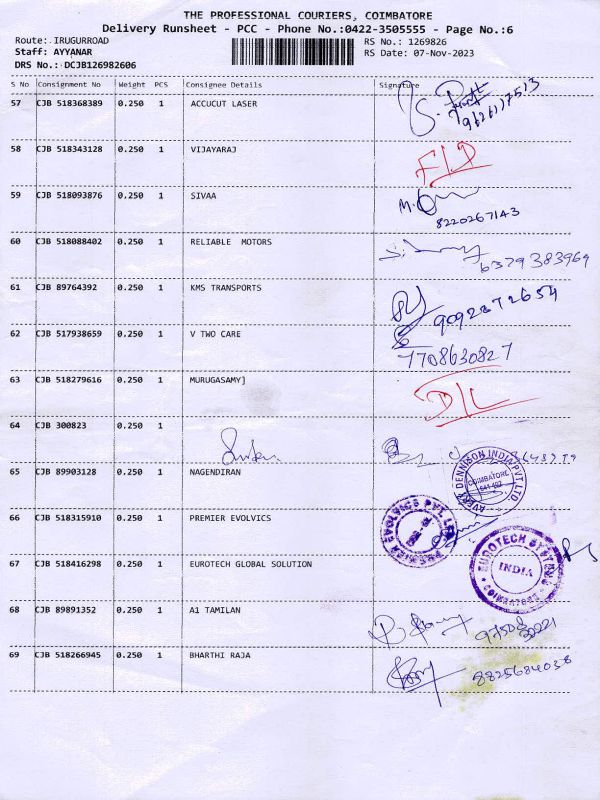 THE PROFESSIONAL COURIERS, COIMBATORE
Delivery Runsheet - PCC - Phone No.:0422-3505555 - Page No.:6
Route: IRUGURROAD
RS No.: 1269826
Staff: AYYANAR
RS Date: 07-Nov-2023
DRS No.: DCJB126982606
S No Consignment No Weight PCS Consignee Details Signature
57 CJB 518368389 0.250 1 ACCUCUT LASER
9626117513
58 CJB 518343128 0.250 1 VIJAYARAJ
59 CJB 518093876 0.250 1 SIVAA
8220267143
60 CJB 518088402 0.250 1 RELIABLE MOTORS
6379383969
61 CJB 89764392 0.250 1 KMS TRANSPORTS
9092872654
62 CJB 517938659 0.250 1 V TWO CARE
7708630827
63 CJB 518279616 0.250 1 MURUGASAMY]
D/L
64 CJB 300823 0.250 1
65 CJB 89903128 0.250 1 NAGENDIRAN
AVERY DENNISON INDIA PVT LTD
COIMBATORE
641 402
66 CJB 518315910 0.250 1 PREMIER EVOLVICS
PREMIER EVOLVICS PVT. LTD
67 CJB 518416298 0.250 1 EUROTECH GLOBAL SOLUTION
EUROTECH SYSTEMS
INDIA
COIMBATORE
68 CJB 89891352 0.250 1 A1 TAMILAN
69 CJB 518266945 0.250 1 BHARTHI RAJA
8825684038